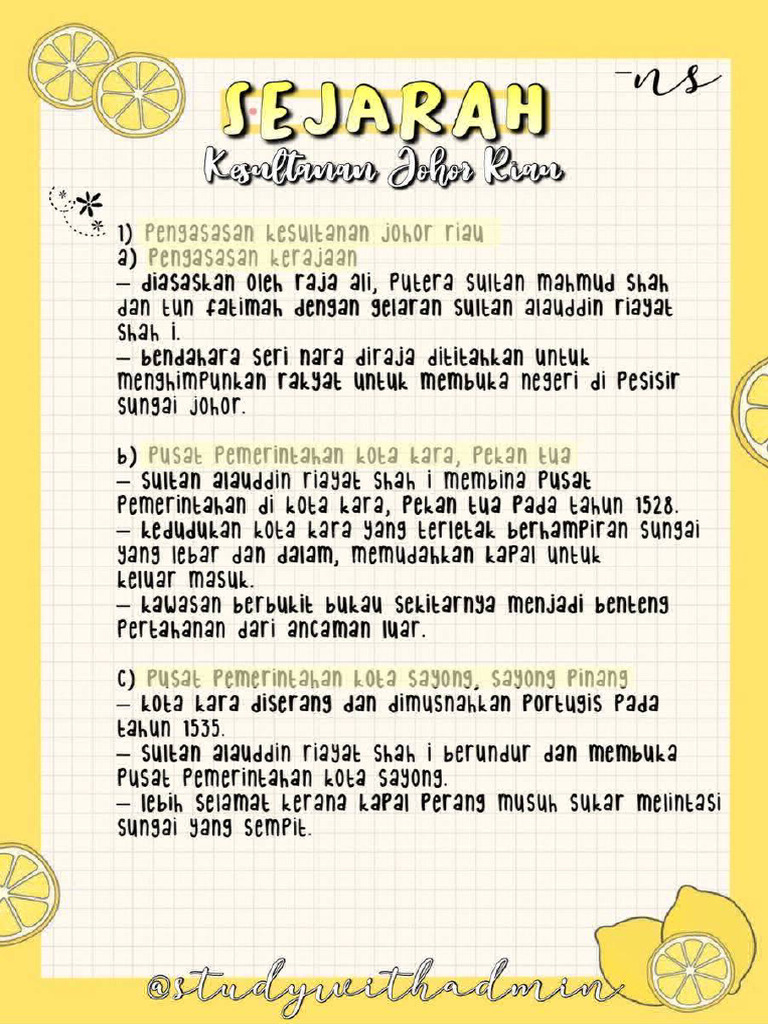 -ns
SEJARAH
Kesultanan Johor Riau
1) Pengasasan kesultanan johor riau
a) Pengasasan kerajaan
– diasaskan oleh raja ali, Putera Sultan mahmud Shah
dan tun fatimah dengan gelaran Sultan alauddin riayat
Shah i.
– bendahara Seri nara diraja dititahkan untuk
menghimpunkan rakyat untuk membuka negeri di Pesisir
Sungai johor.
b) Pusat Pemerintahan kota kara, Pekan tua
– Sultan alauddin riayat Shah i membina Pusat
Pemerintahan di kota kara, Pekan tua Pada tahun 1528.
– kedudukan kota kara yang terletak berhampiran Sungai
yang lebar dan dalam, memudahkan kapal untuk
keluar masuk.
– kawasan berbukit bukau Sekitarnya menjadi benteng
Pertahanan dari ancaman luar.
C) Pusat Pemerintahan kota Sayong, Sayong Pinang
– kota kara diserang dan dimusnahkan Portugis Pada
tahun 1535.
– Sultan alauddin riayat Shah i berundur dan membuka
Pusat Pemerintahan kota Sayong.
– lebih Selamat kerana kapal Perang musuh Sukar melintasi
Sungai yang Sempit.
@studywithadmin